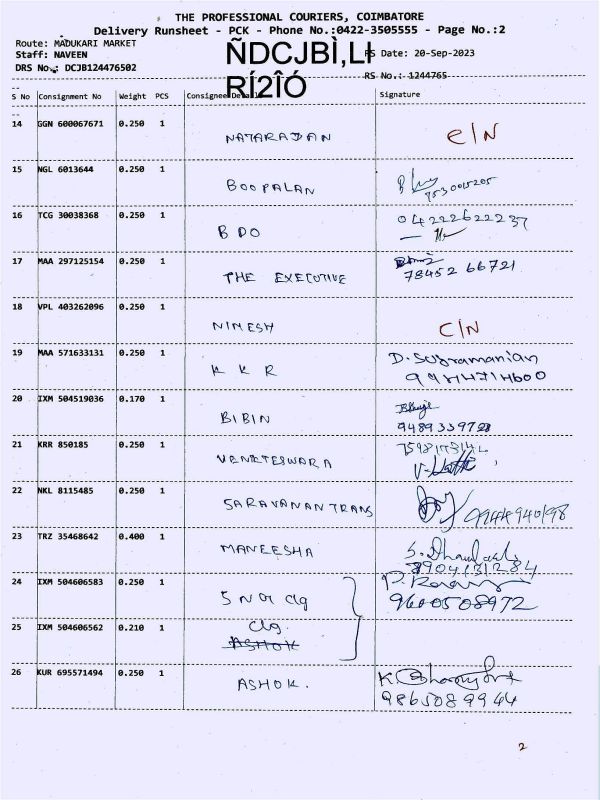 THE PROFESSIONAL COURIERS, COIMBATORE
Delivery Runsheet - PCK - Phone No.:0422-3505555 - Page No.:2
Route: MADUKARI MARKET
Staff: NAVEEN
RS Date: 20-Sep-2023
DRS No.: DCJB124476502
RS No.: 1244765
ÑDCJBÌ,LI
RÍ2ÎÓ
S No Consignment No Weight PCS Consignee Details Signature
14 GGN 600067671 0.250 1 NATARAJAN C/N
15 NGL 6013644 0.250 1 BOOPALAN
16 TCG 30038368 0.250 1 BDO 04222622237
17 MAA 297125154 0.250 1 THE EXECUTIVE
78452 66721
18 VPL 403262096 0.250 1 NIMESH C/N
19 MAA 571633131 0.250 1 K K R D. Subramanian
20 IXM 504519036 0.170 1 BIBIN
9489339728
21 KRR 850185 0.250 1 VENKTESWARA
22 NKL 8115485 0.250 1 SARAVANAN TRANS 9944940198
23 TRZ 35468642 0.400 1 MANEESHA
8904131284
24 IXM 504606583 0.250 1
9600508972
25 IXM 504606562 0.210 1 Clg
ASHOK
26 KUR 695571494 0.250 1 ASHOK.
9865089944
2